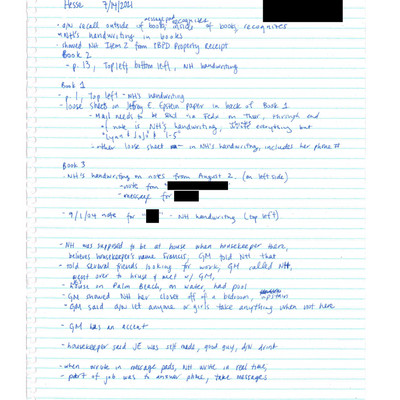 Hesse 7/04/2021
- d/n recall outside of books, inside of books, recognizes
- NH's handwriting in books
- showed NH Item 2 from PBPD Property Receipt
Book 2
- p. 13, Top left, bottom left, NH handwriting
Book 1
- p. 1, Top left - NH's handwriting
- loose sheet in Jeffrey E. Epstein paper in back of Book 1
- Mail needs to be sent in Fedx on Thur, through and
note is NH's handwriting, wrote everything but
"Lynn + JoJo" + "1-5"
- other loose sheet in NH's handwriting, includes her phone #
Book 3
- NH's handwriting on notes from August 2. (on left side)
- note from
- message for
- 9/1/24 note for " " - NH handwriting (top left).
- NH was supposed to be at house when housekeeper there,
believes housekeeper's name Francis, GM told NH that
- told several friends looking for work, GM called NH,
went over to house & met w/ GM,
- house on Palm Beach, on water, had pool
- GM showed NH her closet off of a bedroom, upstairs
- GM said d/n let anyone or girls take anything when not here
- GM has an accent
- housekeeper said JE was self made, good guy, d/n drink
- when wrote in message pads, NH wrote in real time;
- part of job was to answer phone, take messages